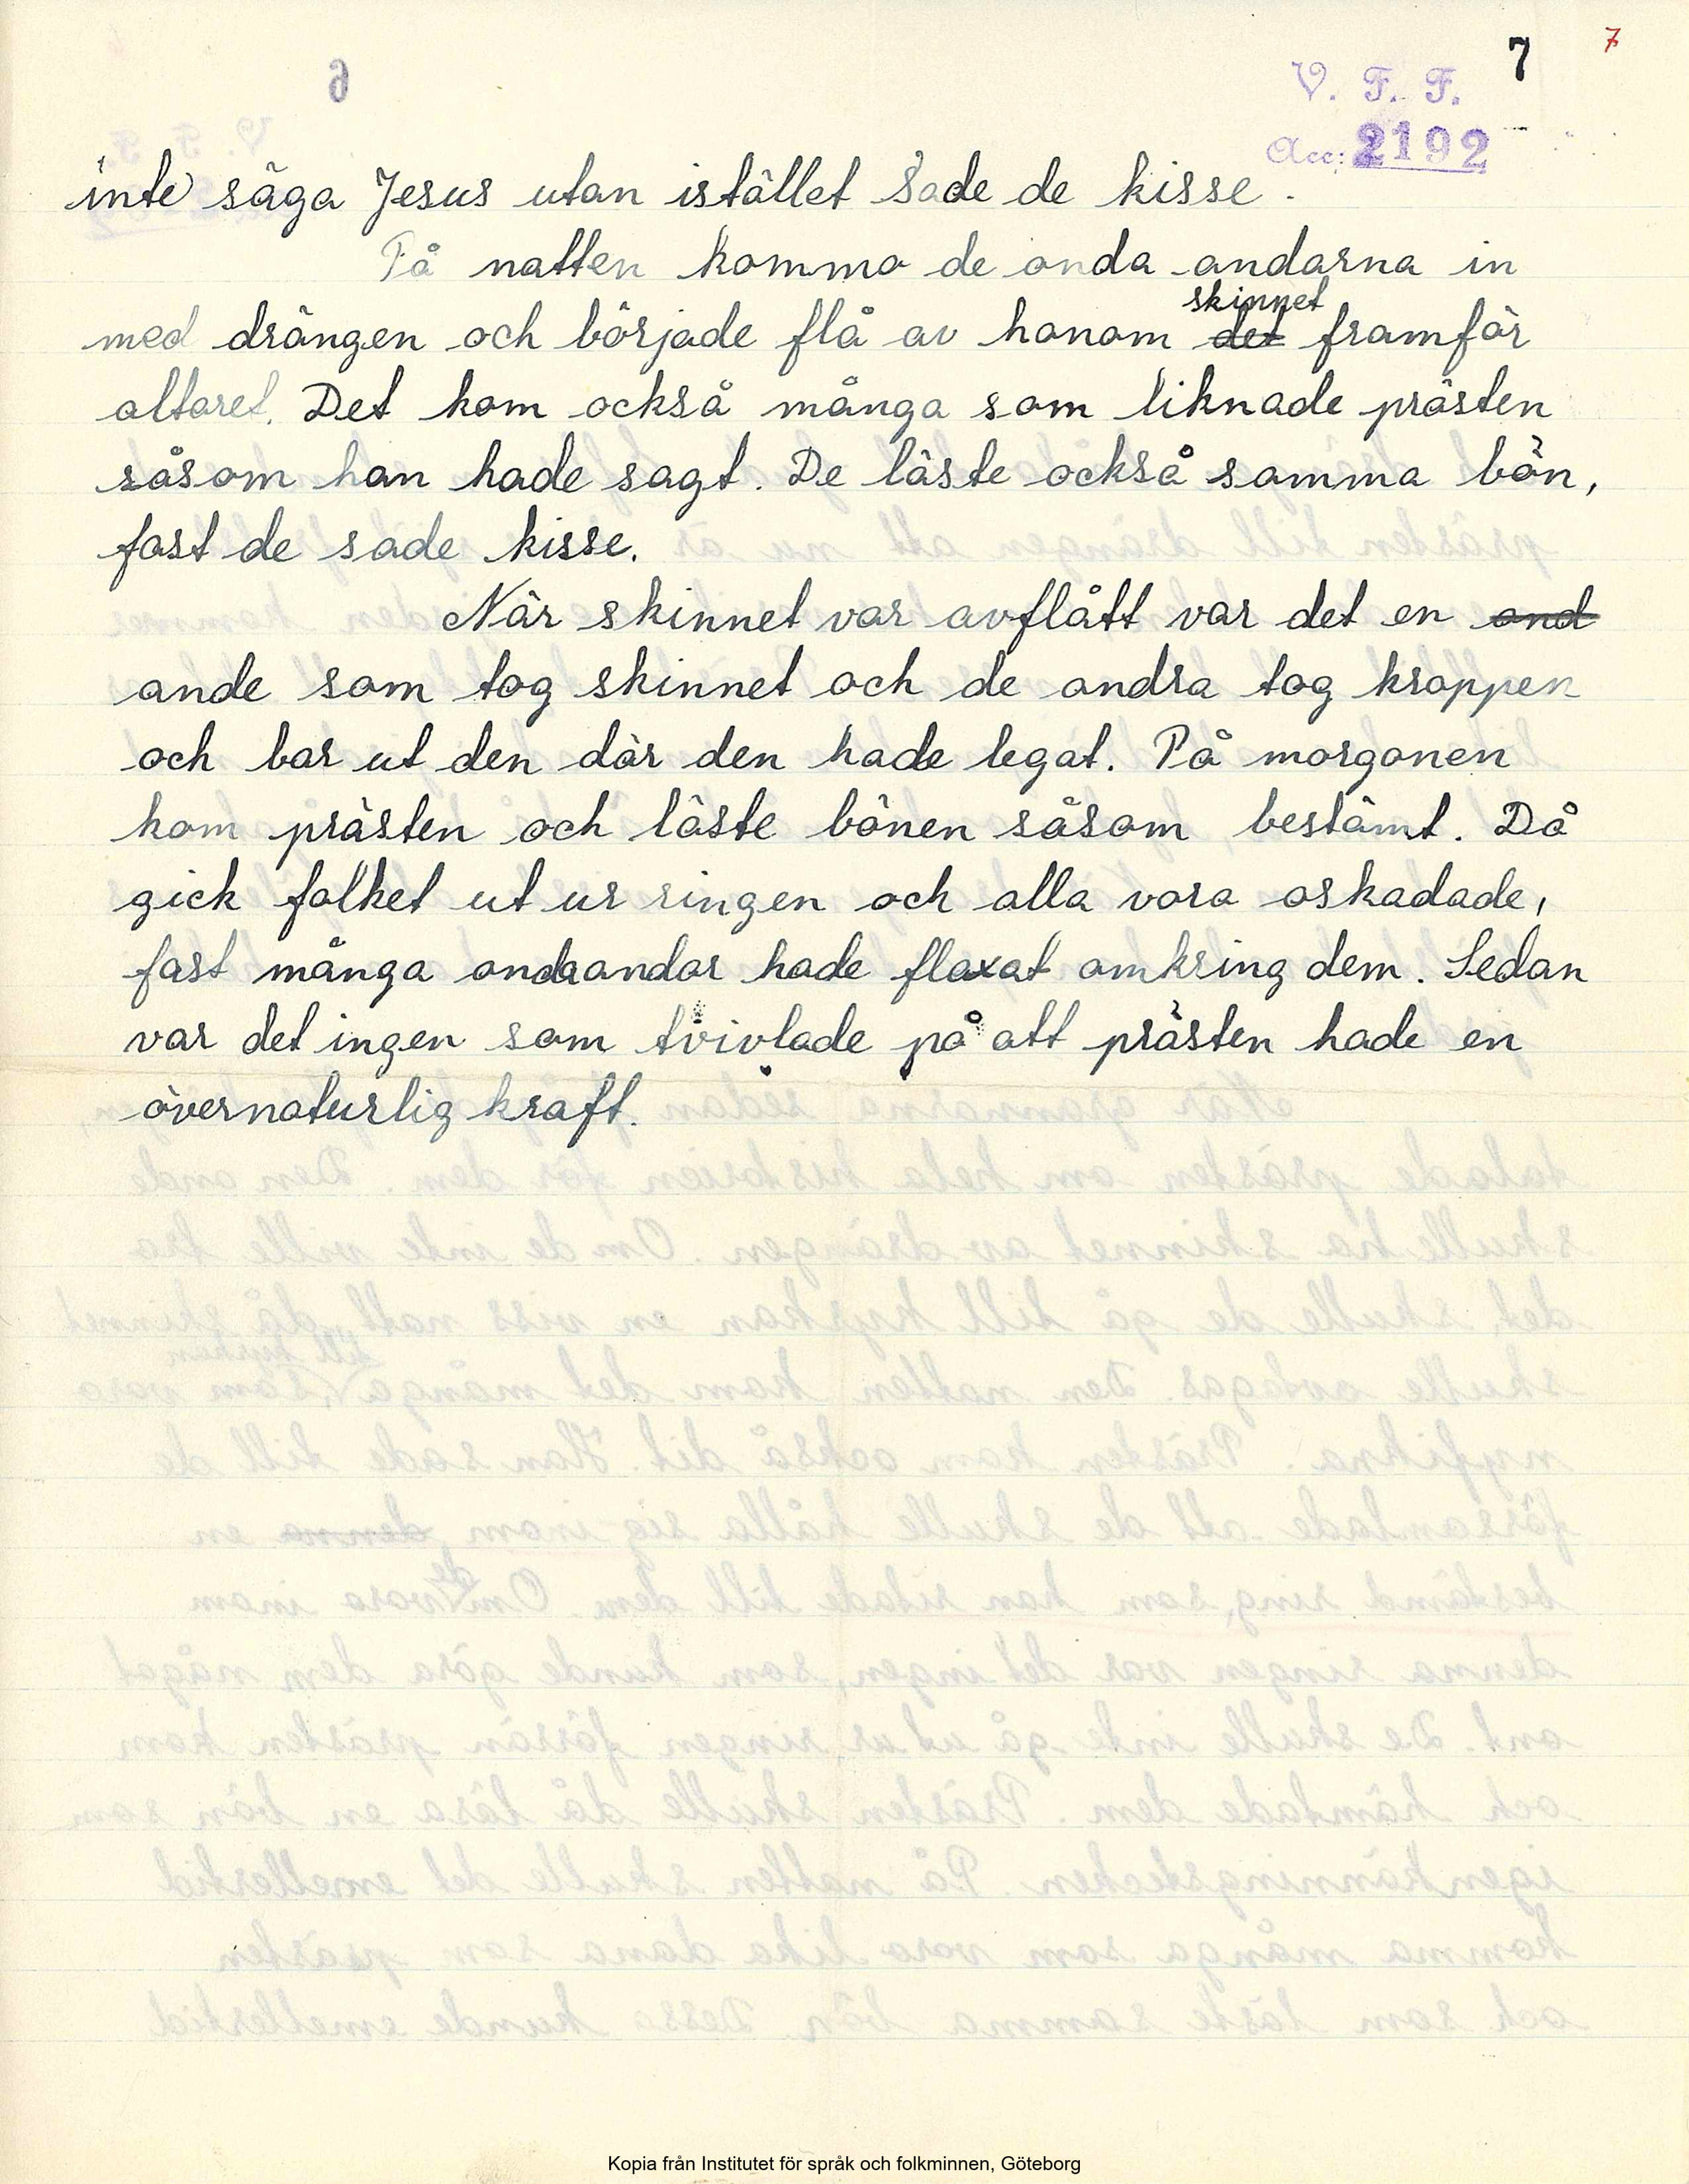 7 7
V. F. F.
Acc: 2192
inte säga Jesus utan istället sade de kisse.
På natten kommo de onda andarna in
med drängen och började flå av honom det skinnet framför
altaret. Det kom också många som liknade prästen
såsom han hade sagt. De läste också samma bön,
fast de sade kisse.
När skinnet var avflått var det en and
ande som tog skinnet och de andra tog kroppen
och bar ut den där den hade legat. På morgonen
kom prästen och läste bönen såsom bestämt. Då
gick folket ut ur ringen och alla voro oskadade,
fast många onda andar hade flaxat omkring dem. Sedan
var det ingen som tvivlade på att prästen hade en
övernaturlig kraft.
Kopia från Institutet för språk och folkminnen, Göteborg